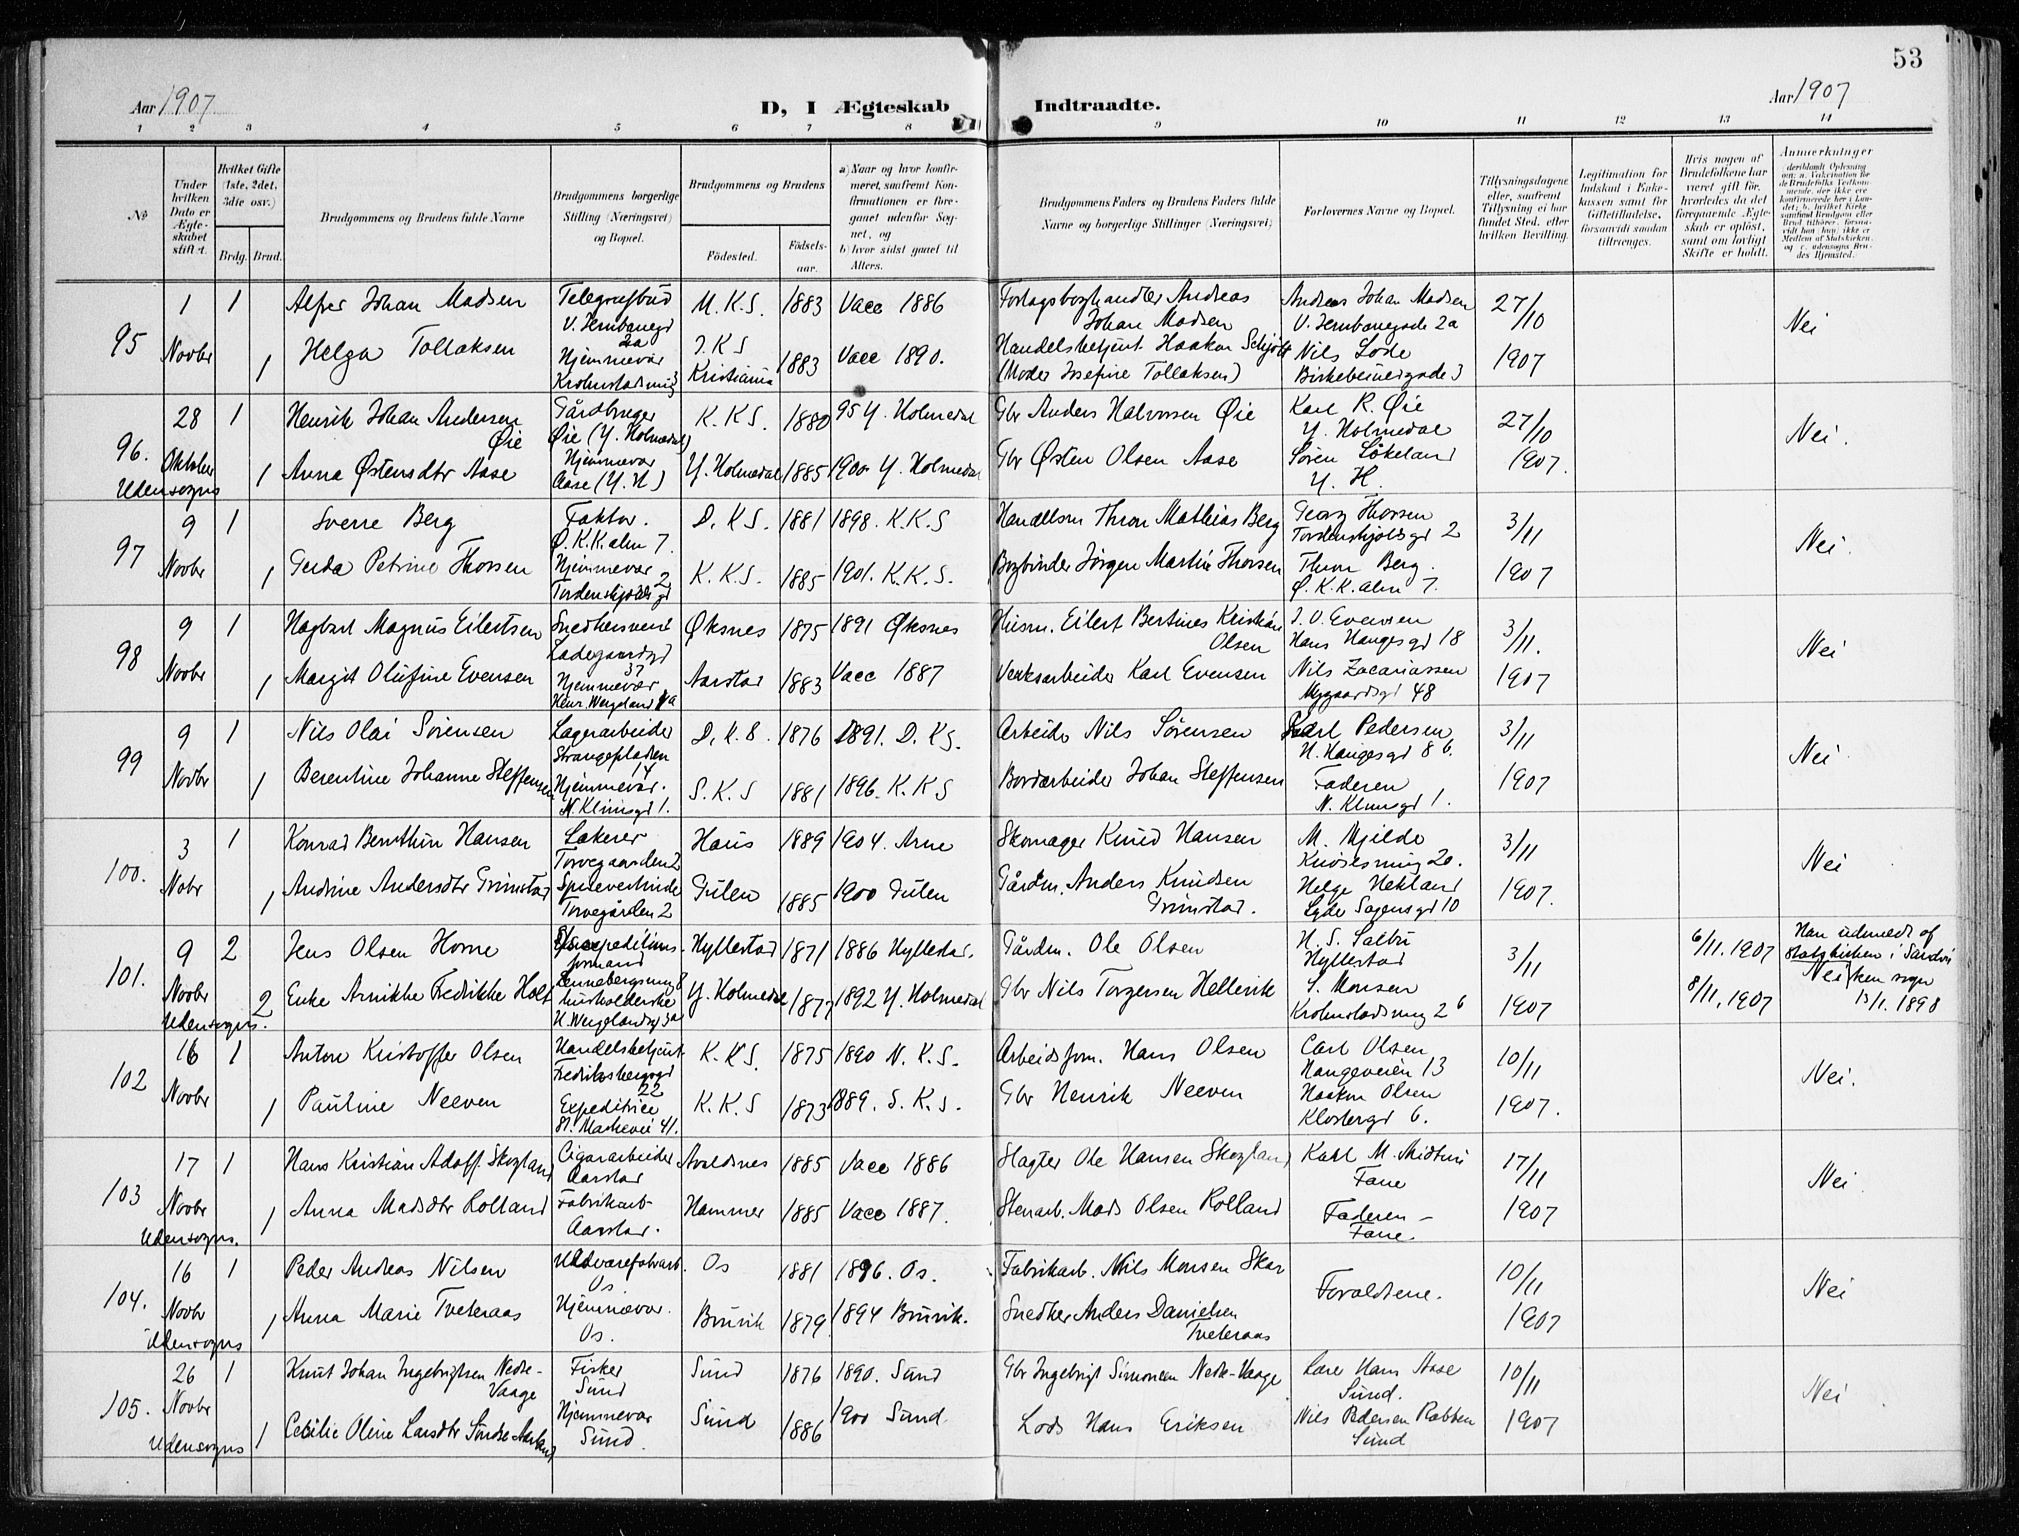 53
Aar 1907
D, I Ægteskab Indtraadte.
Aar 1907
1 2 3 4 5 6 7 8 9 10 11 12 13 14
№
Under hvilken Dato er Ægteskabet stiftet.
Hvilket Gifte (1ste, 2det, 3die osv.)
Brdg. Brud.
Brudgommens og Brudens fulde Navne
Brudgommens borgerlige Stilling (Næringsvei) og Bopæl.
Brudgommens og Brudens
Fødested. Fødselsaar.
a) Naar og hvor konfirmeret, saafremt Konfirmationen er foregaaet udenfor Sognet, og
b) hvor sidst gaaet til Alters.
Brudgommens Faders og Brudens Faders fulde Navne og borgerlige Stillinger (Næringsvei)
Forlovernes Navne og Bopæl.
Tillysningsdagene eller, saafremt Tillysning ei har fundet Sted, efter hvilken Bevilling.
Legitimation for Indskud i Enkekassen samt for Giftetilladelse, forsaavidt saadan tiltrænges.
Hvis nogen af Brudefolkene har været gift før, hvorledes da det foregaaende Ægteskab er opløst, samt om lovligt Skifte er holdt.
Anmærkninger
95
1 Novbr 1 Alfer Johan Madsen Telegrafbud V. Jernbanegd 2a M.K.S. 1883 Vacc 1886 Forlagsboghandler Andreas Johan Madsen Andreas Johan Madsen V. Jernbanegade 2a 27/10 1907 Nei
1 Helga Tollaksen Hjemmevær J.K.S Kristiania 1883 Vacc 1890. Handelsbetjent Haakon Schjött (Moder Josefine Tollaksen) Nils Lode Birkebeinergade 3
96. Udensogns
28 Oktober 1 Henrik Johan Andersen Øie Gårdbruger Øie (Y. Holmedal) K.K.S. 1880 95 Y. Holmedal Gbr Anders Halvorsen Øie Karl R. Øie Y. Holmedal 27/10 1907. Nei.
1 Anna Østensdtr Aase Hjemmevær Aase (Y.H) Y. Holmedal 1885 1900 Y. Holmedal Gbr Østen Olsen Aase Søren Løkeland Y. H.
97
9 Novbr 1 Sverre Berg Faktor. Ø.K.K.alm 7. D.K.S. 1881 1898. K.K.S Handelsm Thron Mathias Berg Georg Thorsen Tordenskjoldsgd 2 3/11 1907 Nei.
1 Gerda Petrine Thorsen Hjemmevær Tordenskjoldsgd 2 K.K.S. 1885 1901. K.K.S. Bogbinder Jörgen Martin Thorsen Thron Berg. Ø.K.K.alm 7.
98
9 Novbr 1 Hagbart Magnus Eilertsen Snedkersvend Ladegaardsgd 37 Øksnes 1875 1891 Øksnes Husm. Eilert Bertines Kristian Olsen J.O. Evensen Hans Haugesgd 18 3/11. 1907 Nei
1 Margit Olufine Evensen Hjemmevær Aarstad 1883 Vacc 1887 Verksarbeider Karl Evensen Nils Zacariassen Nygaardsgd 48
99
9 Novbr 1 Nils Olai Sörensen Lagerarbeider Strangepladsen 14 D.K.S. 1876 1891. D.K.S. Arbeider Nils Sørensen Karl Pedersen H. Haugesgd 8 b. 3/11 1907 Nei
1 Berentine Johanne Steffensen Hjemmevær. N. Klimsgd 1. S.K.S 1881 1896. K.K.S Bordarbeider Johan Steffensen Faderen N. Klimsgd 1.
100.
3 Nobr 1 Konrad Hansen Lakerer Torvegaarden 2 Haus 1889 1904. Arne Skomager Knud Hansen M. Mjelde 3/11 1907. Nei
1 Andrine Andersdtr Grimstad Torvegården 2 Gulen 1885 1900 Gulen Gårdm. Anders Knudsen Grimstad. Helge Hekland Lyder Sagensgd 10
101. Udensogns.
9 Novbr 2 Jens Olsen Horne Hyllestad 1871 1886 Hyllestad. Gårdm. Ole Olsen H.S. Salbu Hyllestad 3/11 1907 6/11. 1907 Han udmeldt af statskirken i Sandviken sogn 13/1. 1898
2 Enke Arnikke Fredrikke Holt H. Wergelandsgd 3a Y. Holmedal 1877 1892 Y. Holmedal Gbr Nils Torgersen Hellevik S. Monsen 8/11, 1907 Nei
102
16 Novbr 1 Anton Kristoffer Olsen Handelsbetjent Fredriksbergsgd 22 K.K.S. 1875 1890 N.K.S. Arbeidsform. Hans Olsen Carl Olsen Haugeveien 13 10/11 1907. Nei.
1 Pauline Neeven Expeditrice St. Markevei 41. K.K.S 1873 1889. S.K.S. Gbr Henrik Neeven Haakon Olsen Klostergd 6.
103 Udensogns.
17 Novbr 1 Hans Kristian Adolf Skogland Cigararbeider Aarstad Avaldsnes 1885 Vacc 1886 Slagter Ole Hansen Skogland Karl M. Midtun Fane 17/11 1907 Nei.
1 Anna Madsdtr Rolland Fabrikarb Aarstad. Hammer 1885 Vacc 1887. Stenarb. Mads Olsen Rolland Faderen – Fane.
104. Udensogns
16 Novbr 1 Peder Andreas Nilsen Uldvarefabarb. Os. Os 1881 1896. Os. Fabrikarb. Nils Monsen Skar Forældrene. 10/11 1907 Nei
1 Anna Marie Tveteraas Hjemmevær. Os. Bruvik 1879. 1894 Bruvik. Snedker Anders Danielsen Tveteraas
105. Udensogns
26 Novbr 1 Knut Johan Ingebrigtsen Nedre-Vaage Fisker Sund Sund 1876 1890. Sund Gbr Ingebrigt Simonsen Nedre-Vaage Lars Hans Aase Sund. 10/11 1907 Nei
1 Cecilie Oline Larsdtr Hjemmevær Sund. Sund 1886 1900 Sund. Lods Hans Eriksen Nils Pedersen Rabben Sund